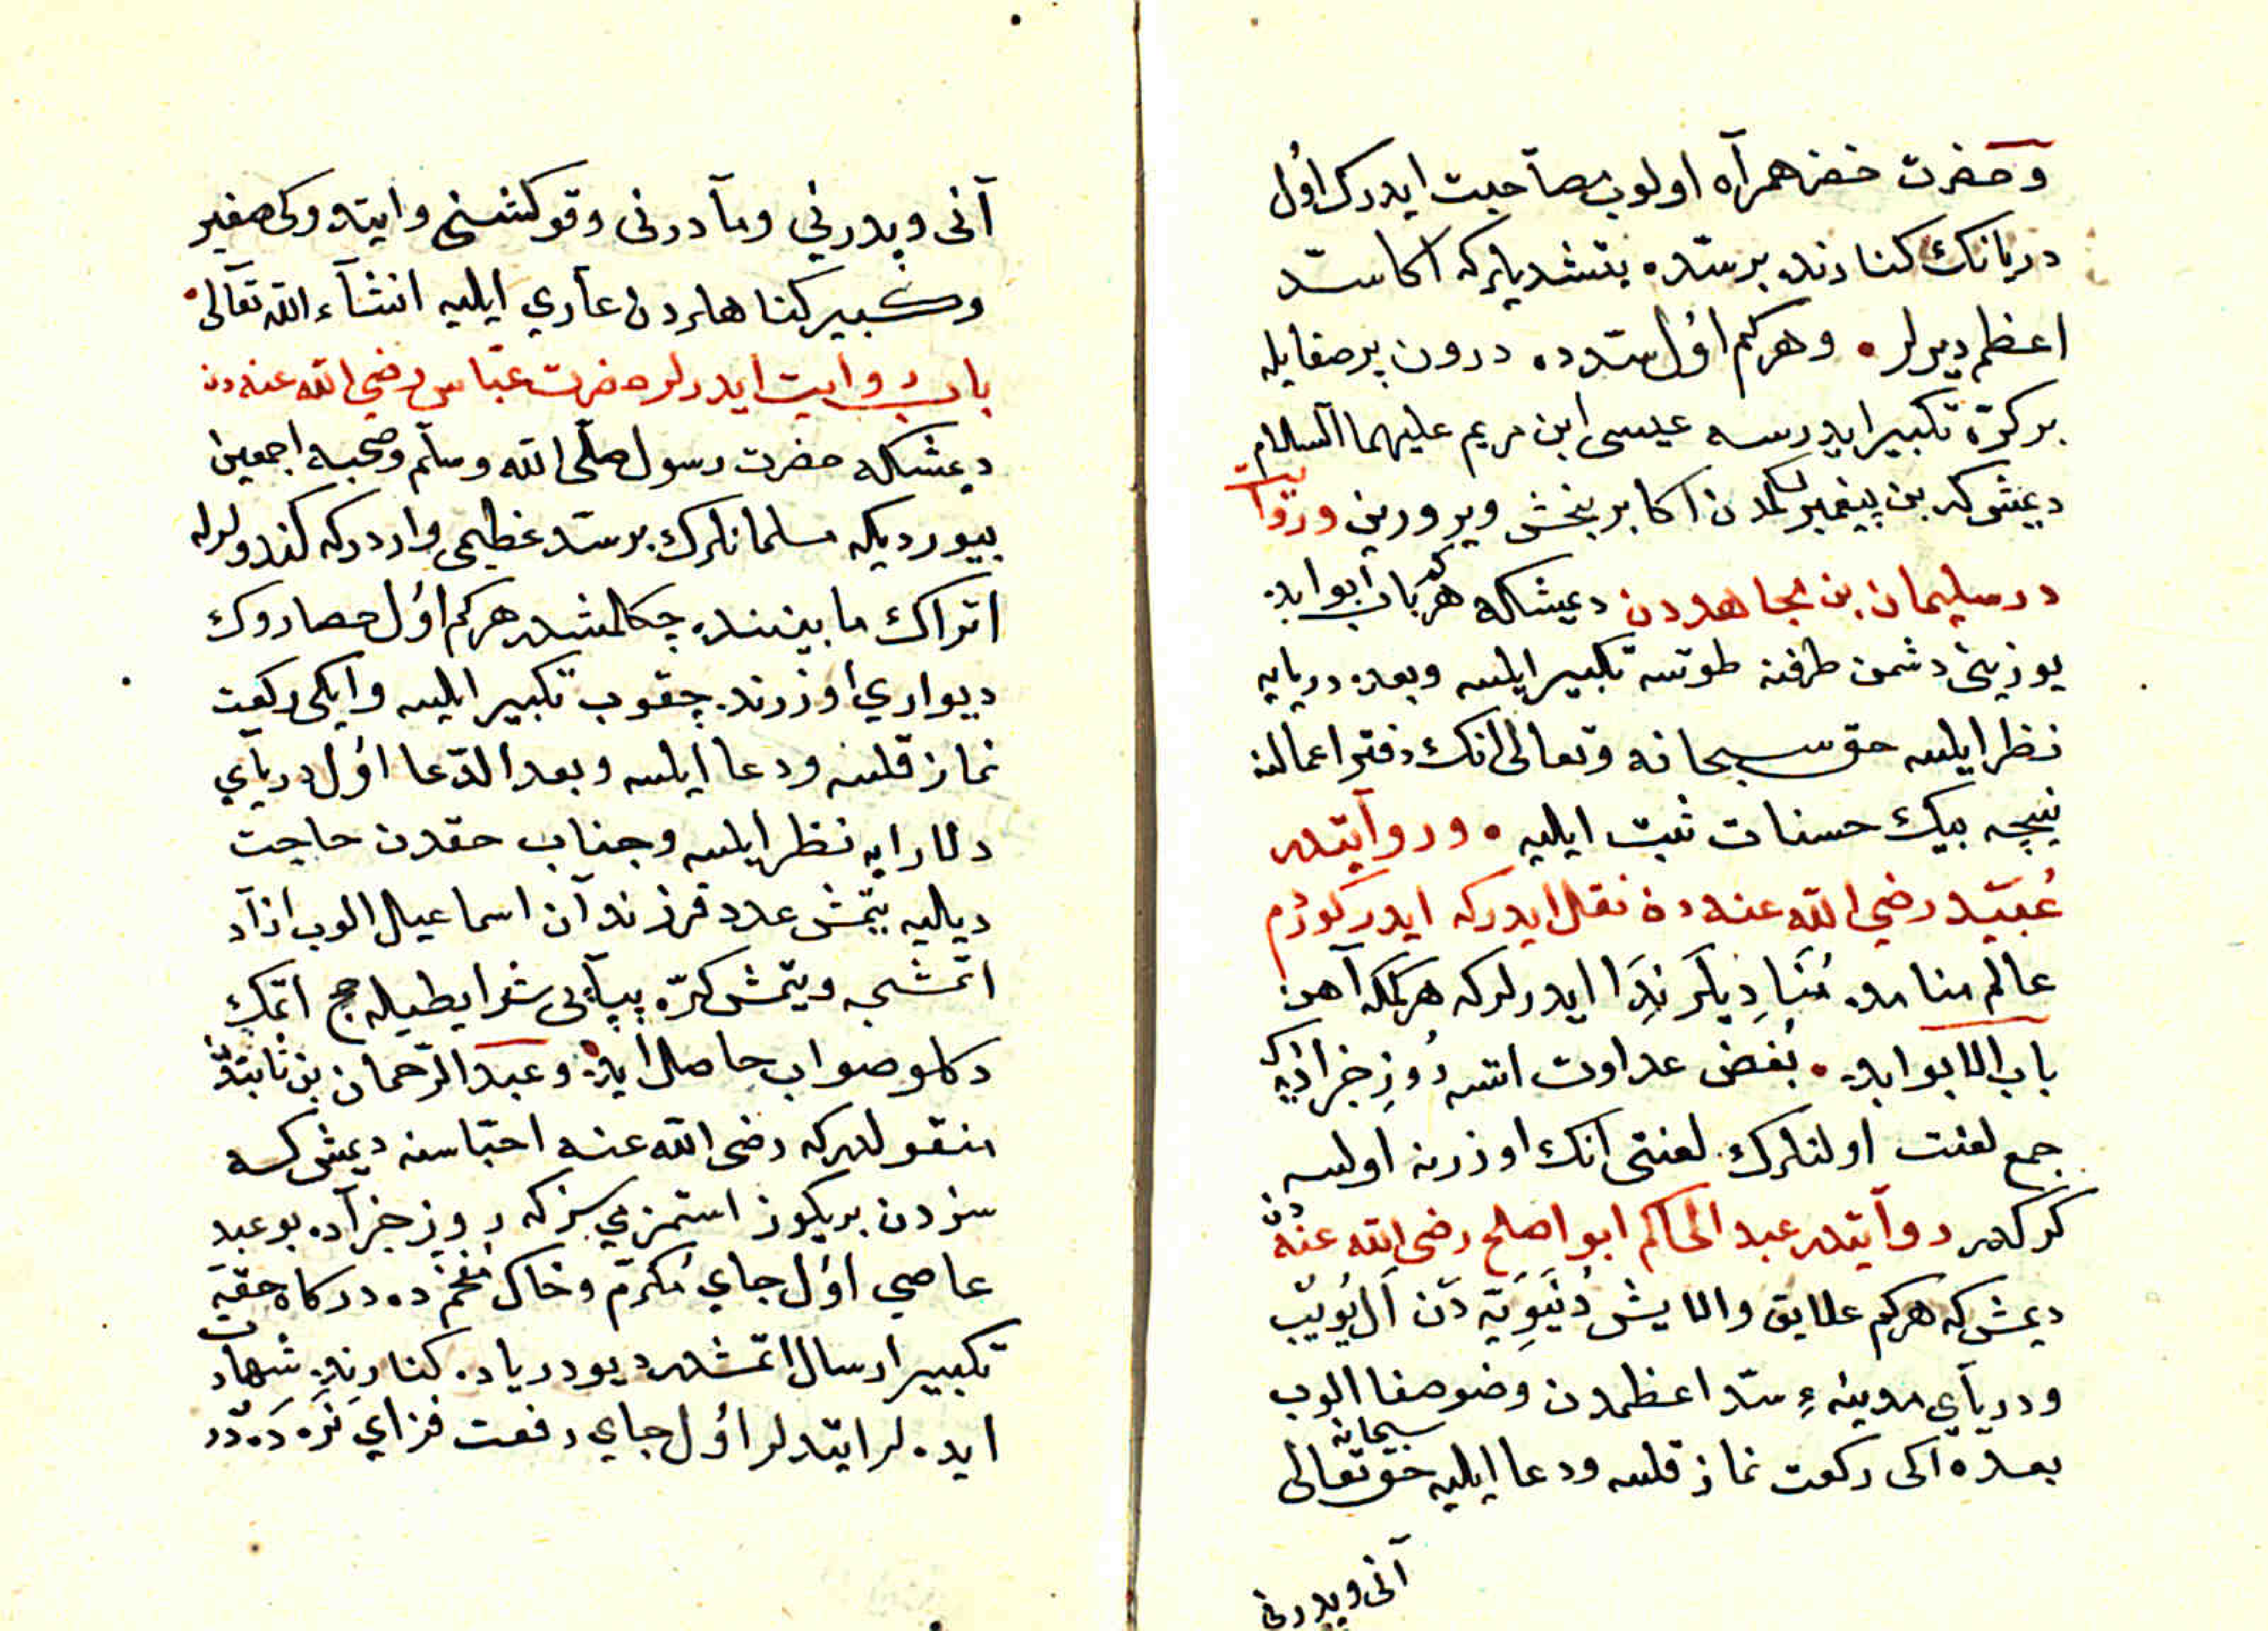 وحضرت خضر همرآه اولوب مصآحبت ايدرك اول
دريانك كنارنده بر سدّه يتشديلر كه اكا سد
اعظم ديرلر • وهر كم اوْل سدّده درون پر صفايله
بر كرّه تكبير ايدرسه عيسى ابن مريم عليهما السلام
ديمش كه بن پيغمبرلكمدن اكا بر بخش ويرورين وروايت
در سليمان بن مجاهددن ديمشكه هر كه باب ابوابده
يوزينى دشمن طرفنه طوتسه تكبير ايلسه وبعده دريايه
نظر ايلسه حق سبحانه وتعالى انك دفتر اعمالنه
نيجه بيك حسنات ثبت ايليه • وروآيتدر
عُبيّد رضي الله عنه دن نقل ايدر كه ايدر كوررم
عالم منامده مُنَادِيلَر نِدَا ايدرلر كه هر كمكه آهن
باب الابوابده • بُغض عداوت اتسه رُوزِ جزاده كه
جمع لعنت اولنلرك لعنتى آنك اوزرنه اولسه
كركدر روآيتدر عبد الحاكم ابو اصلح رضي الله عنه دن
ديمش كه هر كم علايق والايش دُنيَوِيَّه دَن اَل يُويُب
ودريآي مدينهءِ سدّ اعظمدن وضوصفا الوب
بعده اكى ركعت نماز قلسه ودعا ايليه حق سبحانه تعالى
آنى وپدرنى
آنى وپدرني ومآدرنى وقوكشنى وايتدوكى صغير
وكبير كناهلردن عآري ايليه انشآء الله تعآلى •
باب روايت ايدرلر حضرت عبّاس رضي الله عنه دن
ديمشكه حضرت رسول صلّى الله وسلّم وصحبه اجمعين
بيورديكه مسلمانلرك بر سدّ عظيمى واردر كه كند ولرله
اتراك مابيننده چكلمشدر هر كم اوُل حصاروك
ديواري اوزرنده چقوب تكبير ايلسه وايكى ركعت
نماز قلسه ودعا ايلسه وبعد الدّعا اوُل دريآي
دلارايه نظر ايلسه وجناب حقدن حاجت
ديليه يتمش عدد فرزندآن اسماعيل الوب ازآد
اتمشجه ويتمش كرّه پيآپى شرايطيله حج اتمك
دكلو صواب حاصل ايده وعبد الرّحمان بن ثابتدن
منقولدر كه رضى الله عنه احبّاسنه ديمش كسه
سزدن بر يكوز استمزمي سز كه روز جزآده بو عبد
عاصي اوُل جاي مُكرّم وخاك مُفخّم ده دركاه حقه
تكبير ارسال اتمشدر ديو درياده كنارنده شهادت
ايده لر ايتدلر اوُل جاي رفعت فزاي نَرَه دَه دَر